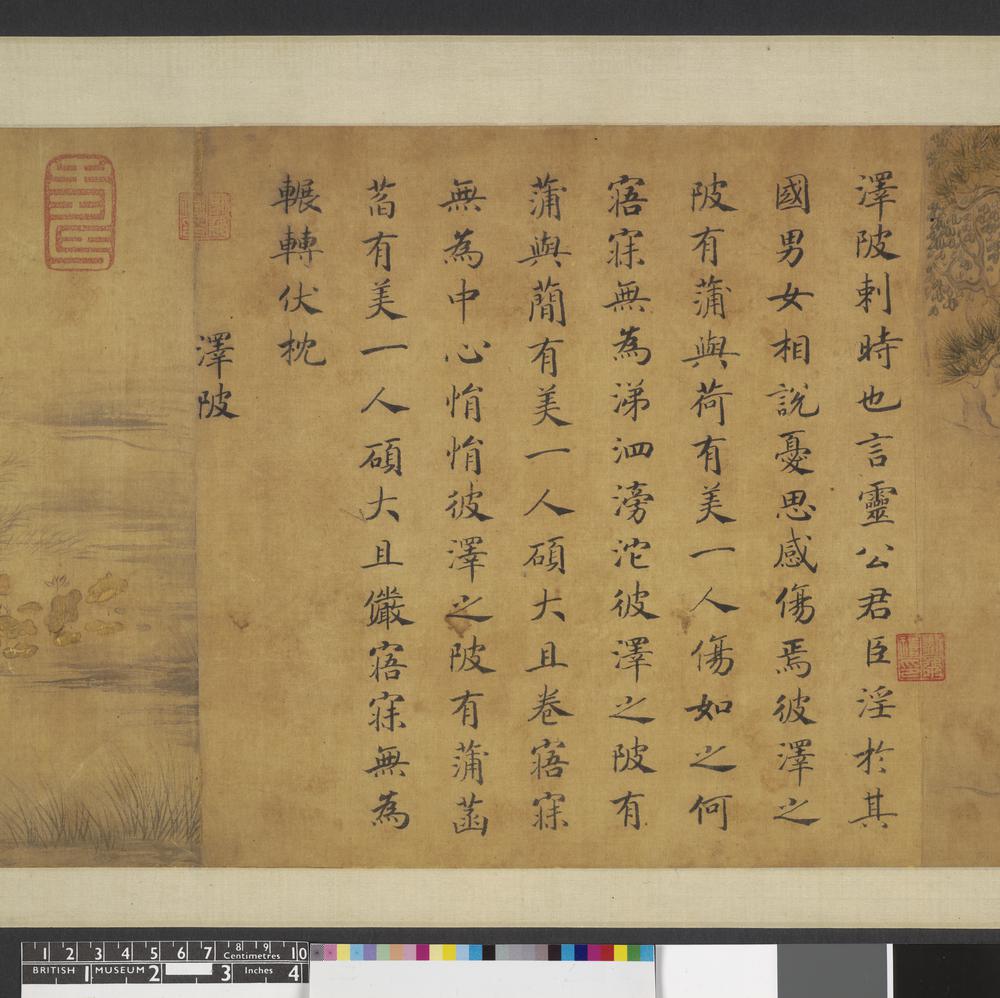 澤陂刺時也言靈公君臣淫於其
國男女相說憂思感傷焉彼澤之
陂有蒲與荷有美一人傷如之何
寤寐無為涕泗滂沱彼澤之陂有
蒲與蕳有美一人碩大且卷寤寐
無為中心悁悁彼澤之陂有蒲菡
萏有美一人碩大且儼寤寐無為
輾轉伏枕
澤陂
1 2 3 4 5 6 7 8 9 10
Centimetres
BRITISH MUSEUM
1 2 3 4
Inches